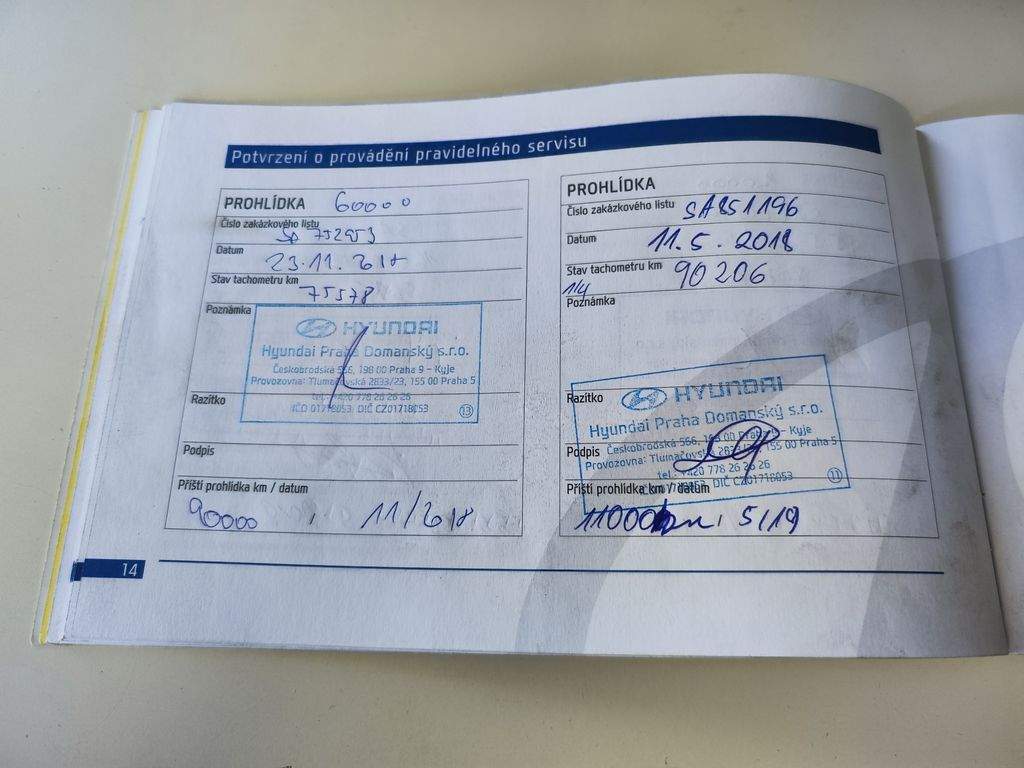 Potvrzení o provádění pravidelného servisu
PROHLÍDKA 60000
Číslo zakázkového listu
SA 752953
Datum
23.11.2017
Stav tachometru km
75578
Poznámka
HYUNDAI
Hyundai Praha Domanský s.r.o.
Českobrodská 566, 198 00 Praha 9 – Kyje
Provozovna: Tlumačovská 2833/23, 155 00 Praha 5
tel.: +420 778 26 26 26
IČO 01718053, DIČ CZ01718053 13
Razítko
Podpis
Příští prohlídka km / datum
90000 , 11/2018
PROHLÍDKA
Číslo zakázkového listu SA851196
Datum 11.5.2018
Stav tachometru km 90206
Poznámka
Razítko
HYUNDAI
Hyundai Praha Domanský s.r.o.
Českobrodská 566, 198 00 Praha 9 – Kyje
Podpis
Provozovna: Tlumačovská 2833/23, 155 00 Praha 5
tel.: +420 778 26 26 26
IČO 01718053, DIČ CZ01718053 11
Příští prohlídka km / datum
110000km, 5/19
14